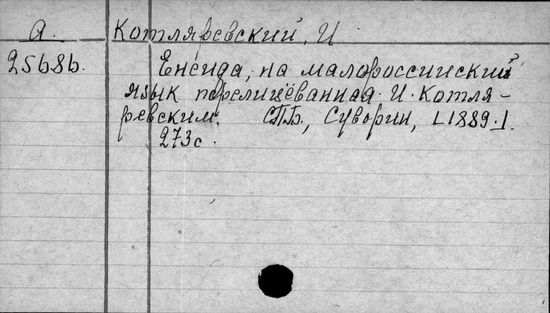 А. Котляревский, И
25686. Енеида, на малороссийский
язык перелицёванная И. Котля-
ревским. СПБ, Суворин, [1889.]
273с.